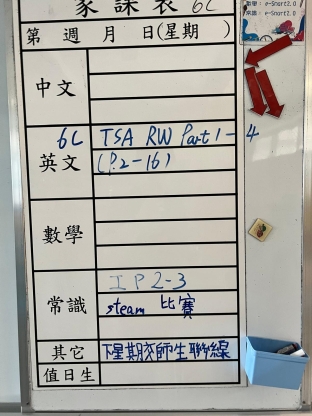 家課表 6C
第 週 月 日(星期 )
數學：e-Smart2.0
常識：e-Smart2.0
中文
6C 英文
TSA RW Part 1-4
(P.2-16)
數學
常識
IP 2-3
steam 比賽
其它
下星期交師生聯線
值日生